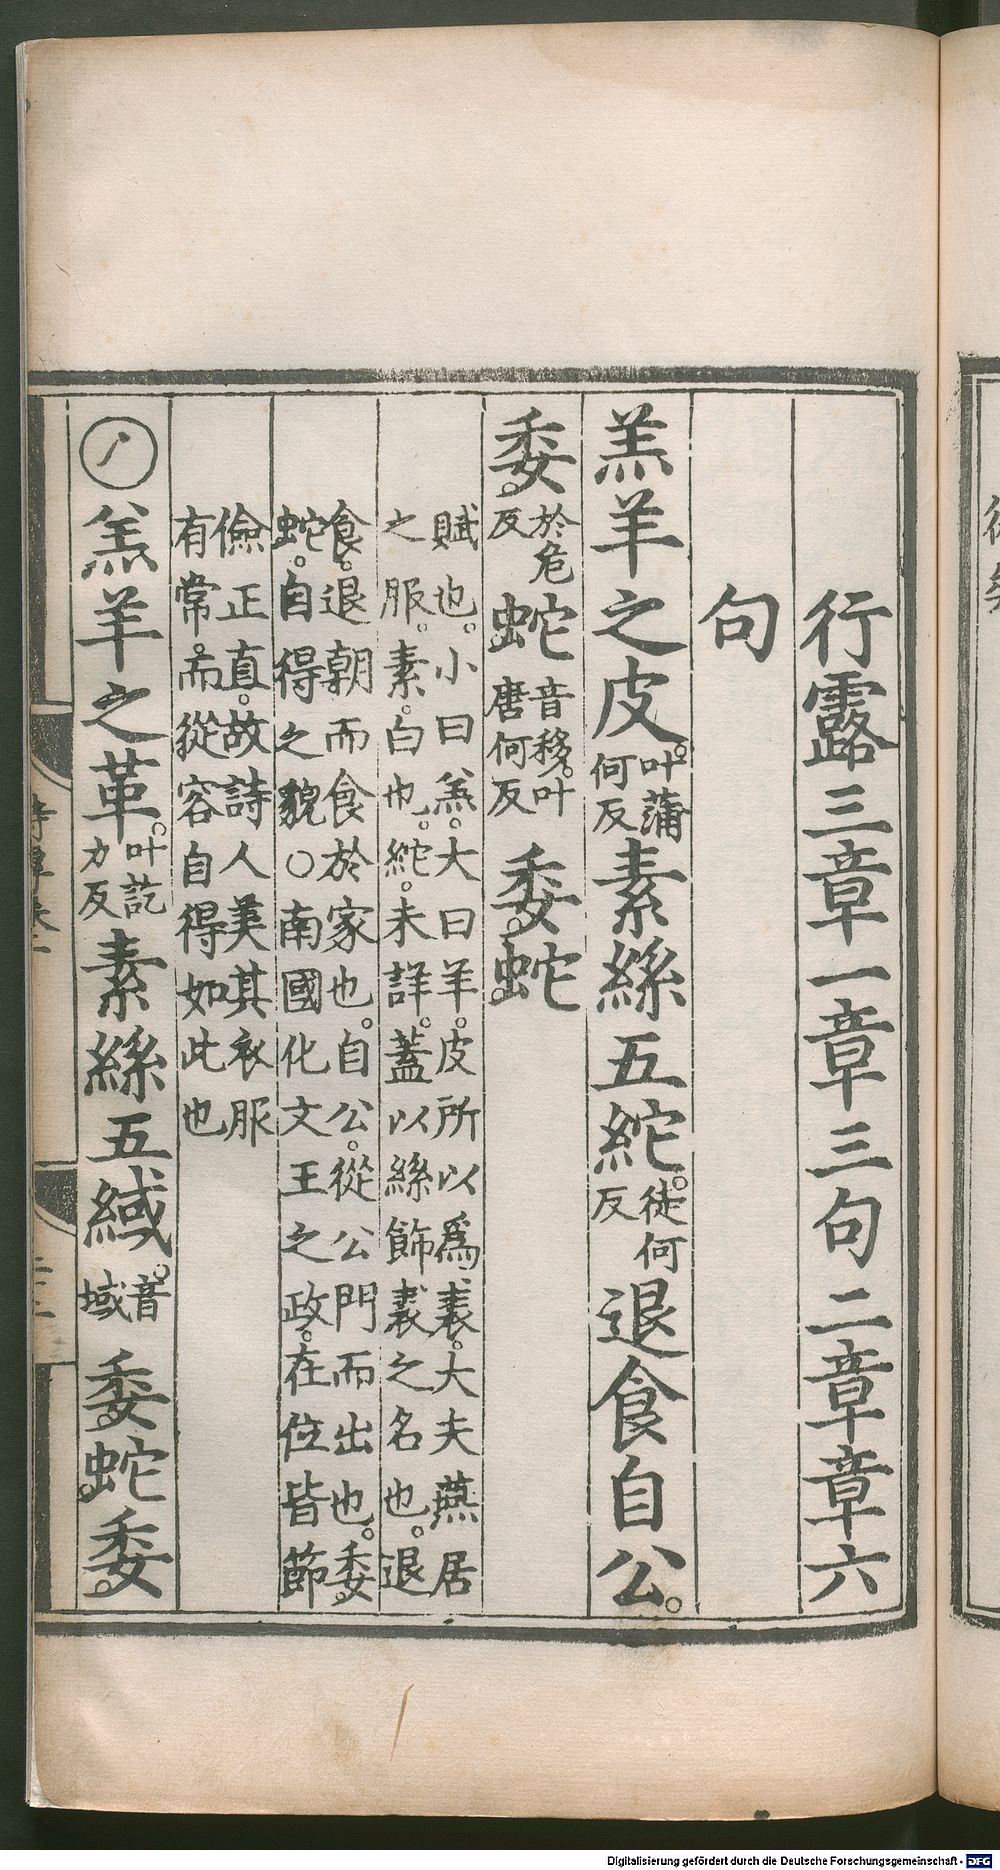 行露三章一章三句二章章六
句
羔羊之皮。叶蒲何反素絲五紽。徒何反退食自公。
委。於危反蛇音移。叶唐何反委。蛇。
賦也。小曰羔。大曰羊。皮所以爲裘。大夫燕居
之服。素。白也。紽。未詳。蓋以絲飾裘之名也。退
食。退朝而食於家也。自公。從公門而出也。委。
蛇。自得之貌○南國化文王之政。在位皆節
儉正直。故詩人美其衣服
有常。而從容自得如此也
○羔羊之革。叶訖力反素絲五緎。音域委。蛇。委。
Digitalisierung gefördert durch die Deutsche Forschungsgemeinschaft - DFG